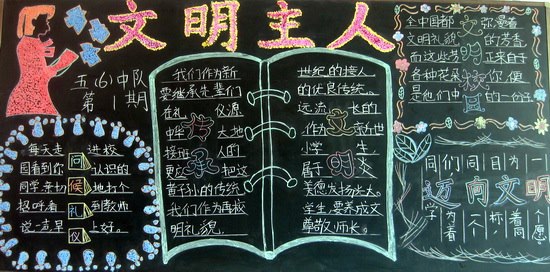 文明主人
五(6)中队
第1期
每天走进校
园看到你问认识的
同学亲切候地打个
招呼看礼到教师
说一声早仪上好。
我们作为新
要继承先辈们
在礼仪源
中华传大地
接班承人的
更应把这
黄子孙的传统
我们作为再接
明礼貌
世纪的接人
的优良传统。
远流长的
作文亲为世
小学生
属于明炎
美德发扬光大。
学生,要养成文
尊敬师长。
全中国都文弥漫着
文明礼貌明的芳香
而这些芳正来自于
各种花朵校你便
是他们中园的一份子
同们同目为一
迈向文明
学为看一个标着同个愿